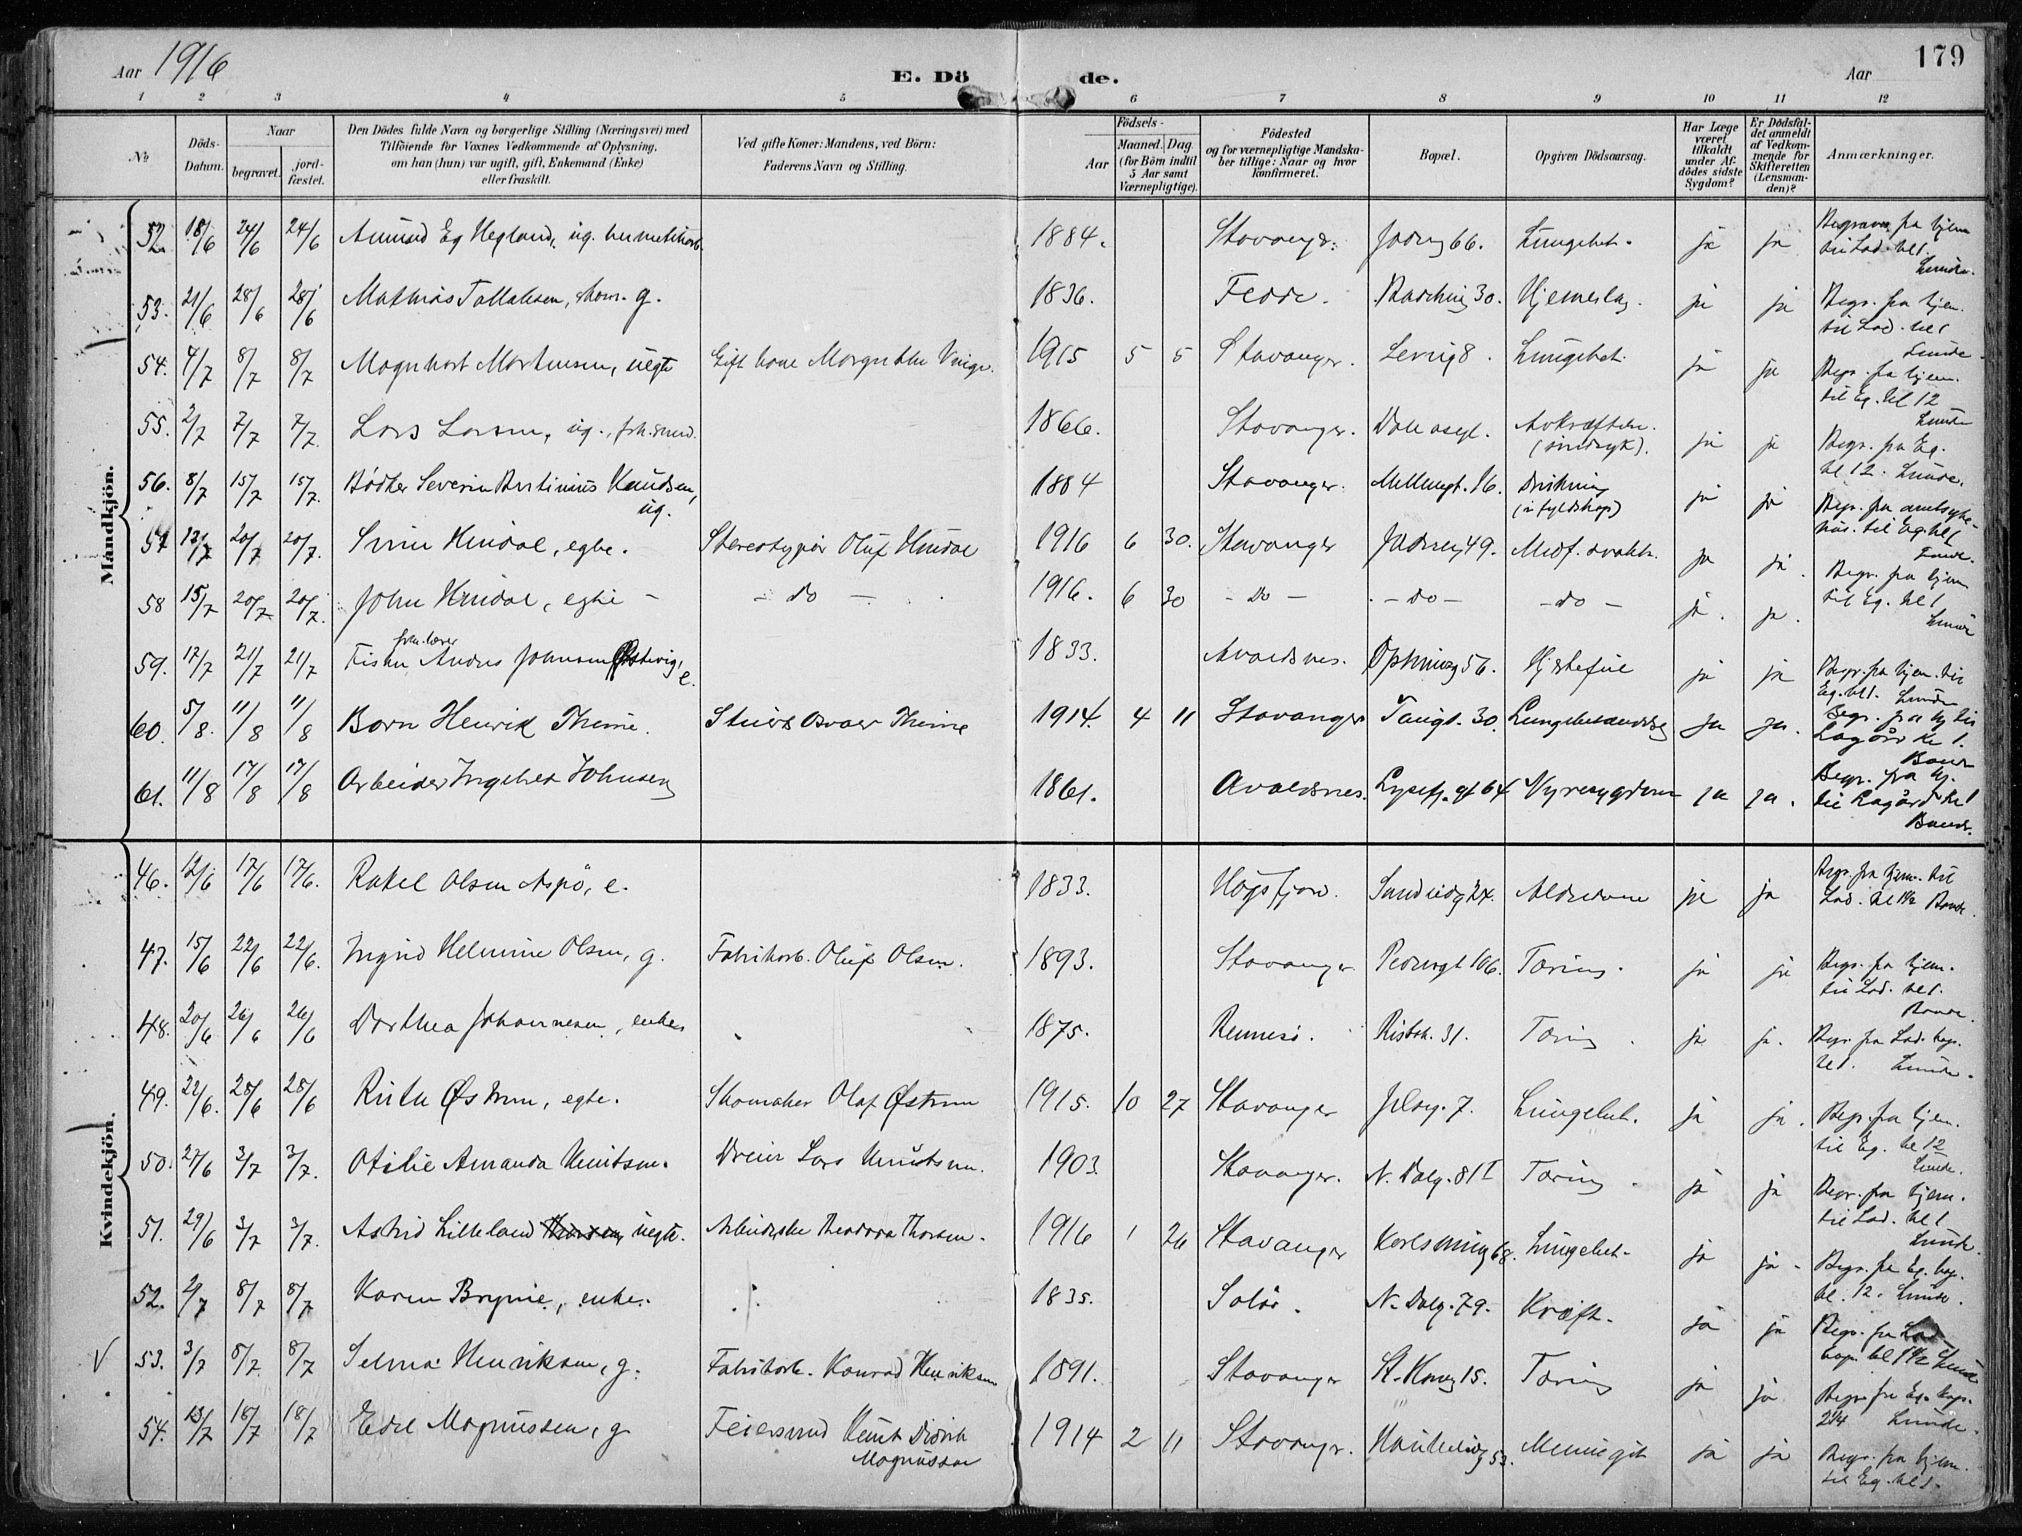 Aar 1916
E. Dö de.
Aar
179
1 2 3 4 5 6 7 8 9 10 11 12
No
Döds-Datum.
Naar
begravet.
jord-fæstet.
Den Dödes fulde Navn og borgerlige Stilling (Næringsvei) med
Tilföiende for Voxnes Vedkommende af Oplysning,
om han (hun) var ugift, gift, Enkemand (Enke)
eller fraskilt.
Ved gifte Koner: Mandens, ved Börn:
Faderens Navn og Stilling.
Födsels-
Aar
Maaned. Dag.
(for Börn indtil
5 Aar samt
Værnepligtige).
Födested
og for værnepligtige Mandska-
ber tillige: Naar og hvor
konfirmeret.
Bopæl.
Opgiven Dödsaarsag.
Har Læge
været
tilkaldt
under Af-
dödes sidste
Sygdom?
Er Dödsfal-
det anmeldt
af Vedkom-
mende for
Skifteretten
(Lensman-
den)?
Anmærkninger.
Mandkjön.
52. 18/6 24/6 24/6 Amund Eg Hegland, ug. 1884. Stavanger. Jadervg 66. Lungebet. ja ja Begravn. fra hjem til Lad. kl 1. Lunde.
53. 21/6 28/6 28/6 Mathias Tallaksen, g. 1836. Fedde. 30. Hjerneslag. ja ja Begr. fra hjem. til Lad. kl 1 Lunde
54. 4/7 8/7 8/7 Mortensen, uegte 1915 5 5 Stavanger. 8. Lungebet. ja ja Begr. fra hjem. til Eg. kl 12 Lunde
55. 2/7 7/7 7/7. Lars Larsen, ug., 1866. Stavanger. Dale asyl. ja ja Begr. fra Eg. kl 12. Lunde.
56. 8/7 15/7 15/7. Bødker Severin Bertinius Knudsen, ug. 1884 Stavanger. 16. Drukning ja ja Begr. fra amtssyke- hus. til Eg kl 1 Lunde.
57 13/7 20/7 20/7. Hindal, egte. Stereotypør Oluf Hindal 1916 6 30. Stavanger Jadervg 49. Medf. svakh. ja ja. Begr. fra hjem til Eg. kl 1 Lunde
58 15/7 20/7 20/7. John Hindal, egte – – do – 1916. 6 30 – Do – – Do – – do – ja. ja.
59. 17/7 21/7 21/7 Fisker Johnsen e. 1833. Avaldsnes. 56. Hjertefeil ja ja Begr. fra hjem. til Eg. kl 1. Lunde
60. 5/8. 11/8 11/8 Barn Henrik Thime. Osvald Thime 1914. 4 11 Stavanger 30. Lungebetændelse ja ja. Begr. fra hj til Lagård kl 1.
61. 11/8 17/8 17/8 Arbeider Ingebret Johnsen 1861. Avaldsnes. Lysefj. gt 64 Nyresygdom ja ja. Begr. fra hj. til Lagård kl 1
Kvindekjön.
46. 12/6 17/6 17/6. Rakel Olsen Aspö, e. 1833. Høgsfjord. 24. Alderdom ja ja Begr. fra hjem. til Lad. kl 1½
47. 15/6 22/6 22/6. Ingrid Helmine Olsen, g. Fabrikarb. Oluf Olsen. 1893. Stavanger Pedersgt 106. Tæring. ja ja Begr. fra hjem. til Lad. kl 1.
48. 20/6 26/6 26/6 Dorthea Johannesen, enke 1875. Rennesö. 31. Tæring. ja ja. Begr. fra Lad. kap. kl 1. Lunde.
49. 22/6. 28/6 28/6 Ruth Østrem, egte. Skomaker Olaf Østrem 1915. 10 27 Stavanger 7. Lungebet. ja ja. Begr. fra hjem. til Eg. kl 12 Lunde.
50. 27/6 3/7 3/7. Otilie Amanda Knutsen. Dreier Lars Knutsen. 1903 Stavanger. N. Dalg. 81 I Tæring. ja ja Begr. fra hjem. til Lad. kl 1 Lunde.
51. 29/6 3/7 3/7. Astrid Lilleland uegte. Arbeiderske Theodora Thorsen. 1916 1 26 Stavanger 68. Lungebet. ja ja. Begr. fra Eg. kap. kl. 12. Lunde.
52. 2/7 8/7 8/7 Karen Bryne, enke. 1835. Solör. N. Dalg. 79. Kræft. ja ja Begr. fra Lad kap. kl 1½ Lunde
V 53. 3/7 8/7. 8/7 Selma Henriksen, g. Fabrikarb. Konrad Henriksen 1891. Stavanger 15. Tæring ja ja Begr. fra Eg. kap. Lunde.
54. 13/7 18/7 18/7 Edel Magnussen, g Feiersvend Knut Didrik Magnussen 1914 2 11 Stavanger. 53. Meningit ja ja Begr. fra hjem. til Eg. kl 1.